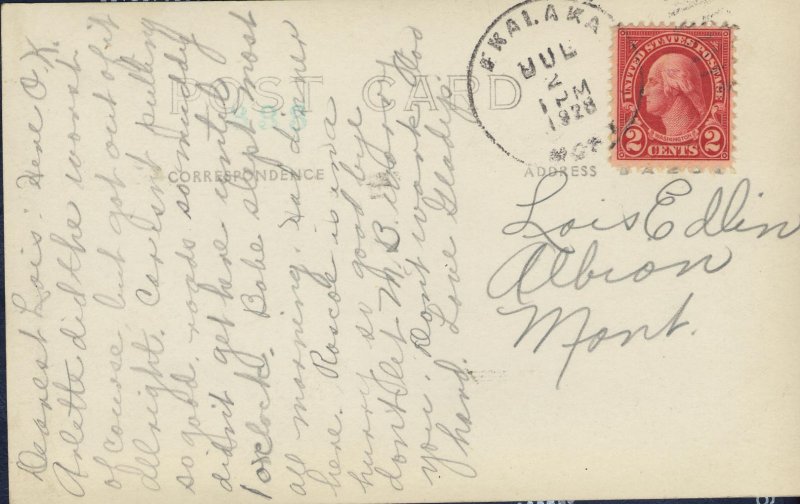 EKALAKA
JUL
2
1 PM
1928
MONT.
UNITED STATES POSTAGE
WASHINGTON
2 CENTS 2
POST CARD
CORRESPONDENCE
ADDRESS
Lois Edlin
Albion
Mont.
Dearest Lois: Here O.K.
Arlette did the worst
of course, but got out of it
allright. Car isn't pulling
so good, roads so muddy
didn't get here until
1 o'clock. Babe slept most
all morning. Had dinner
here. Roscoe is in a
hurry so good bye
don't let M. B. worry
you. Don't work too
hard. Love Gladys.